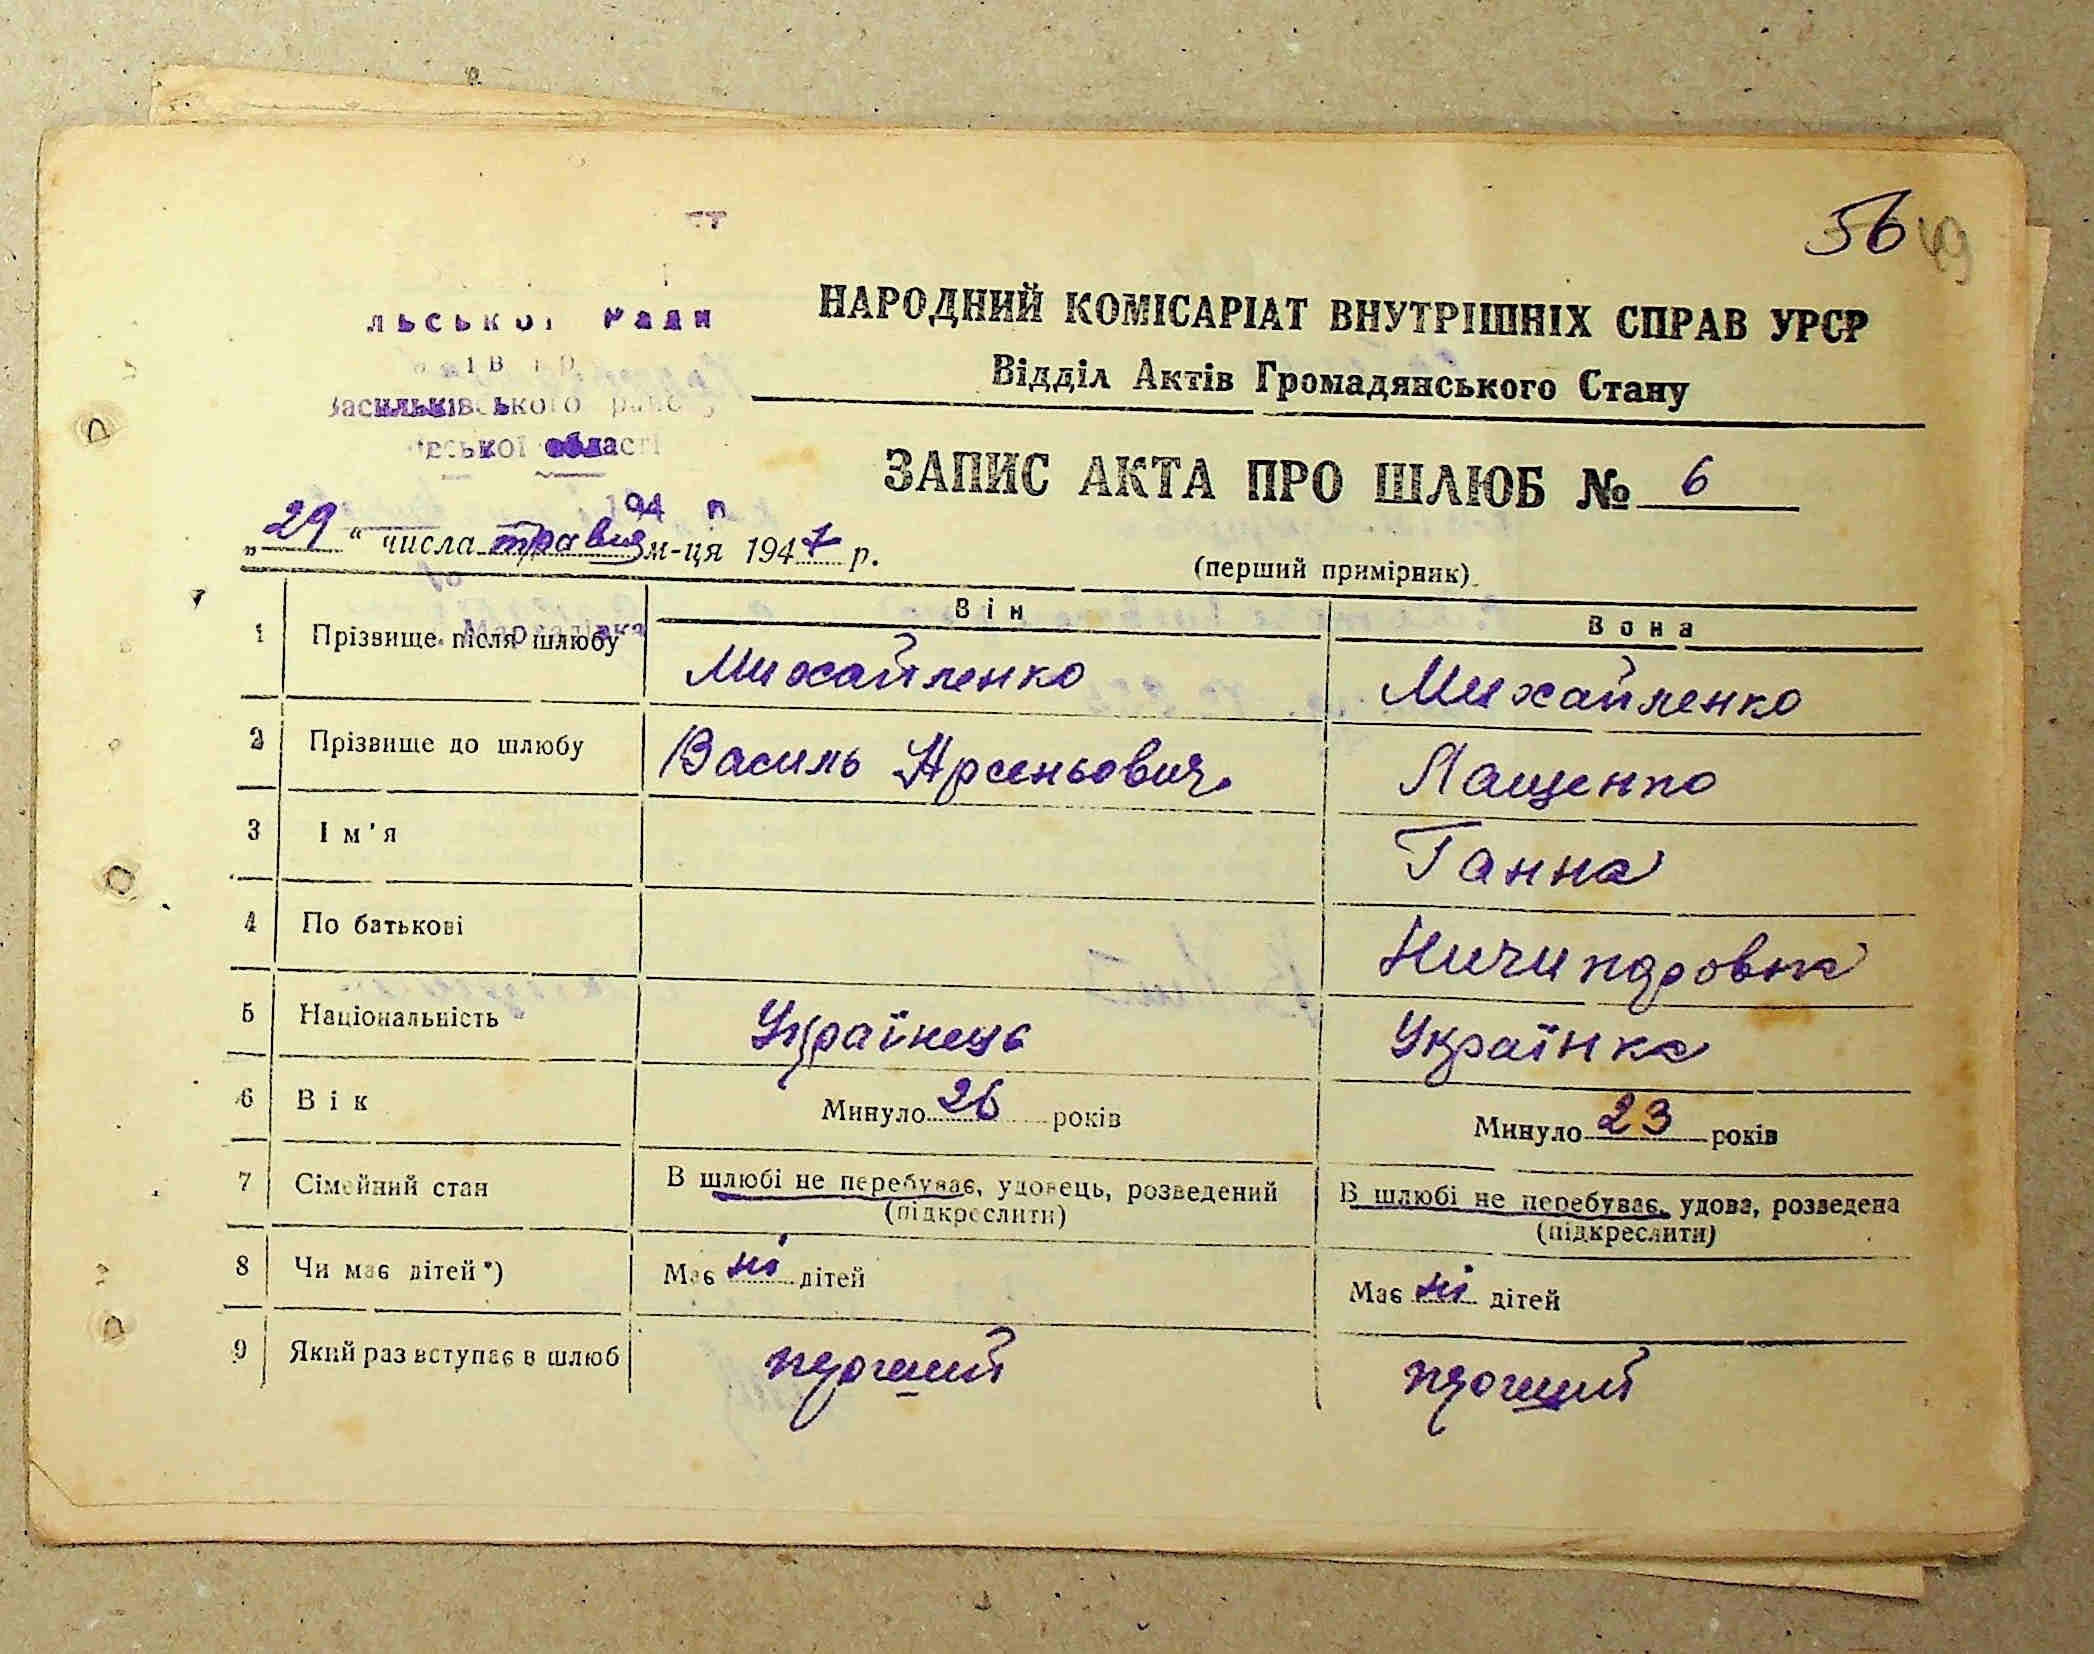 56 49
льської Ради
НАРОДНИЙ КОМІСАРІАТ ВНУТРІШНІХ СПРАВ УРСР
Відділ Актів Громадянського Стану
Васильківського
області
ЗАПИС АКТА ПРО ШЛЮБ № 6
194 р
„29“ числа травня м-ця 1947 р.
(перший примірник)
Він
Вона
1 Прізвище після шлюбу Михайленко Михайленко
2 Прізвище до шлюбу Василь Арсеньович. Лащенко
3 Ім'я Ганна
4 По батькові Ничипоровна
5 Національність Українець Українка
6 Вік Минуло 26 років Минуло 23 років
7 Сімейний стан В шлюбі не перебуває, удовець, розведений В шлюбі не перебуває, удова, розведена
(підкреслити) (підкреслити)
8 Чи має дітей*) Має ні дітей Має ні дітей
9 Який раз вступає в шлюб перший перший